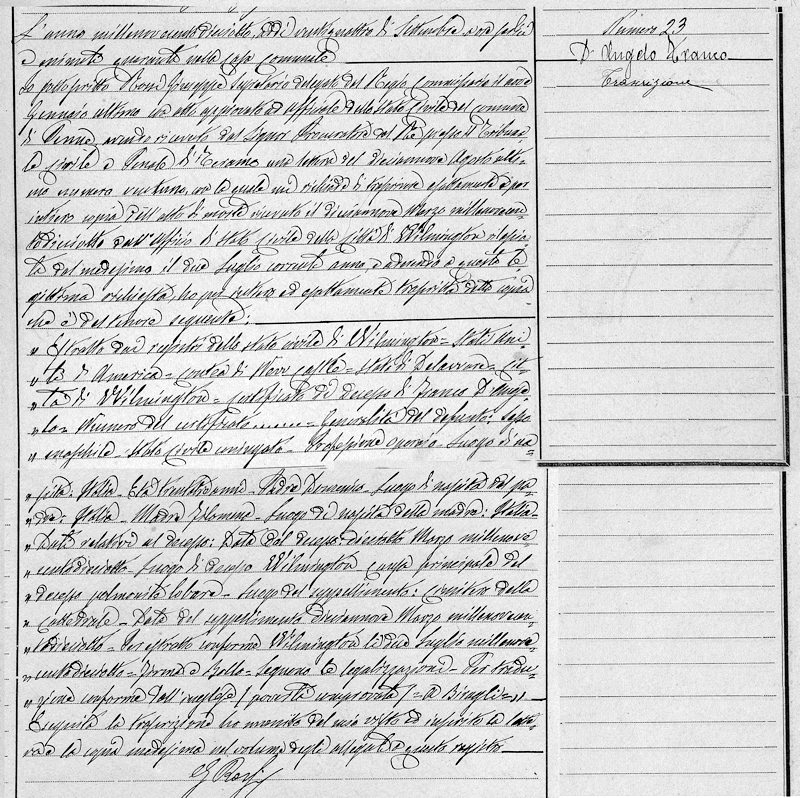 Numero 23
D'Angelo Franco
Trascrizione
L'anno millenovecentodiciotto, addì ventiquattro di Settembre a ore sedici
e minuti quaranta nella Casa comunale
Io sottoscritto Rossi Giuseppe Segretario delegato dal Regio Commissario il nove
Gennaio ultimo con atto approvato ad Ufficiale dello Stato Civile del comune
di Penne, avendo ricevuto dal Signor Procuratore del Re presso il Tribuna-
le Civile e Penale di Teramo una lettera del diciannove Agosto ulti-
mo numero ventuno, con la quale mi richiede di trascrivere esattamente e per
intiero copia dell'atto di morte ricevuto il diciannove Marzo millenovecen-
todiciotto dall'Ufficio di Stato Civile della Città di Wilmington rilascia-
ta dal medesimo il due Luglio corrente anno, e aderendo a questa le-
gittima richiesta ho per intiero ed esattamente trascritta detta copia
che è del tenore seguente:
„ Estratto dai registri dello stato civile di Wilmington = Stati Uni-
„ ti d'America = contea di New Castle = Stato di Delaware = Cit-
„ tà di Wilmington = certificato del decesso di Franco D'Ange-
„ lo = Numero del certificato ......... = Generalità del defunto: Sesso
„ maschile = Stato Civile coniugato = Professione operaio = Luogo di na-
„ scita: Italia = Età trentatre anni = Padre Domenico = Luogo di nascita del pa-
„ dre: Italia = Madre Filomena = Luogo di nascita della madre: Italia =
„ Dati relativi al decesso: Data del decesso diciotto Marzo millenove-
„ centodiciotto = Luogo di decesso Wilmington causa principale del
„ decesso polmonite lobare = Luogo del seppellimento: Cimitero della
„ Cattedrale = Data del seppellimento diciannove Marzo millenovecen-
„ todiciotto = Per estratto conforme Wilmington lì due Luglio millenove-
„ centodiciotto = Firma e Bollo = Seguono le legalizzazioni = Per tradu-
„ zione conforme dall'inglese (povertà comprovata) = „
Eseguita la trascrizione ho munito del mio visto ed inserito la lette-
ra e la copia medesima nel volume degli allegati a questo registro
G Rossi